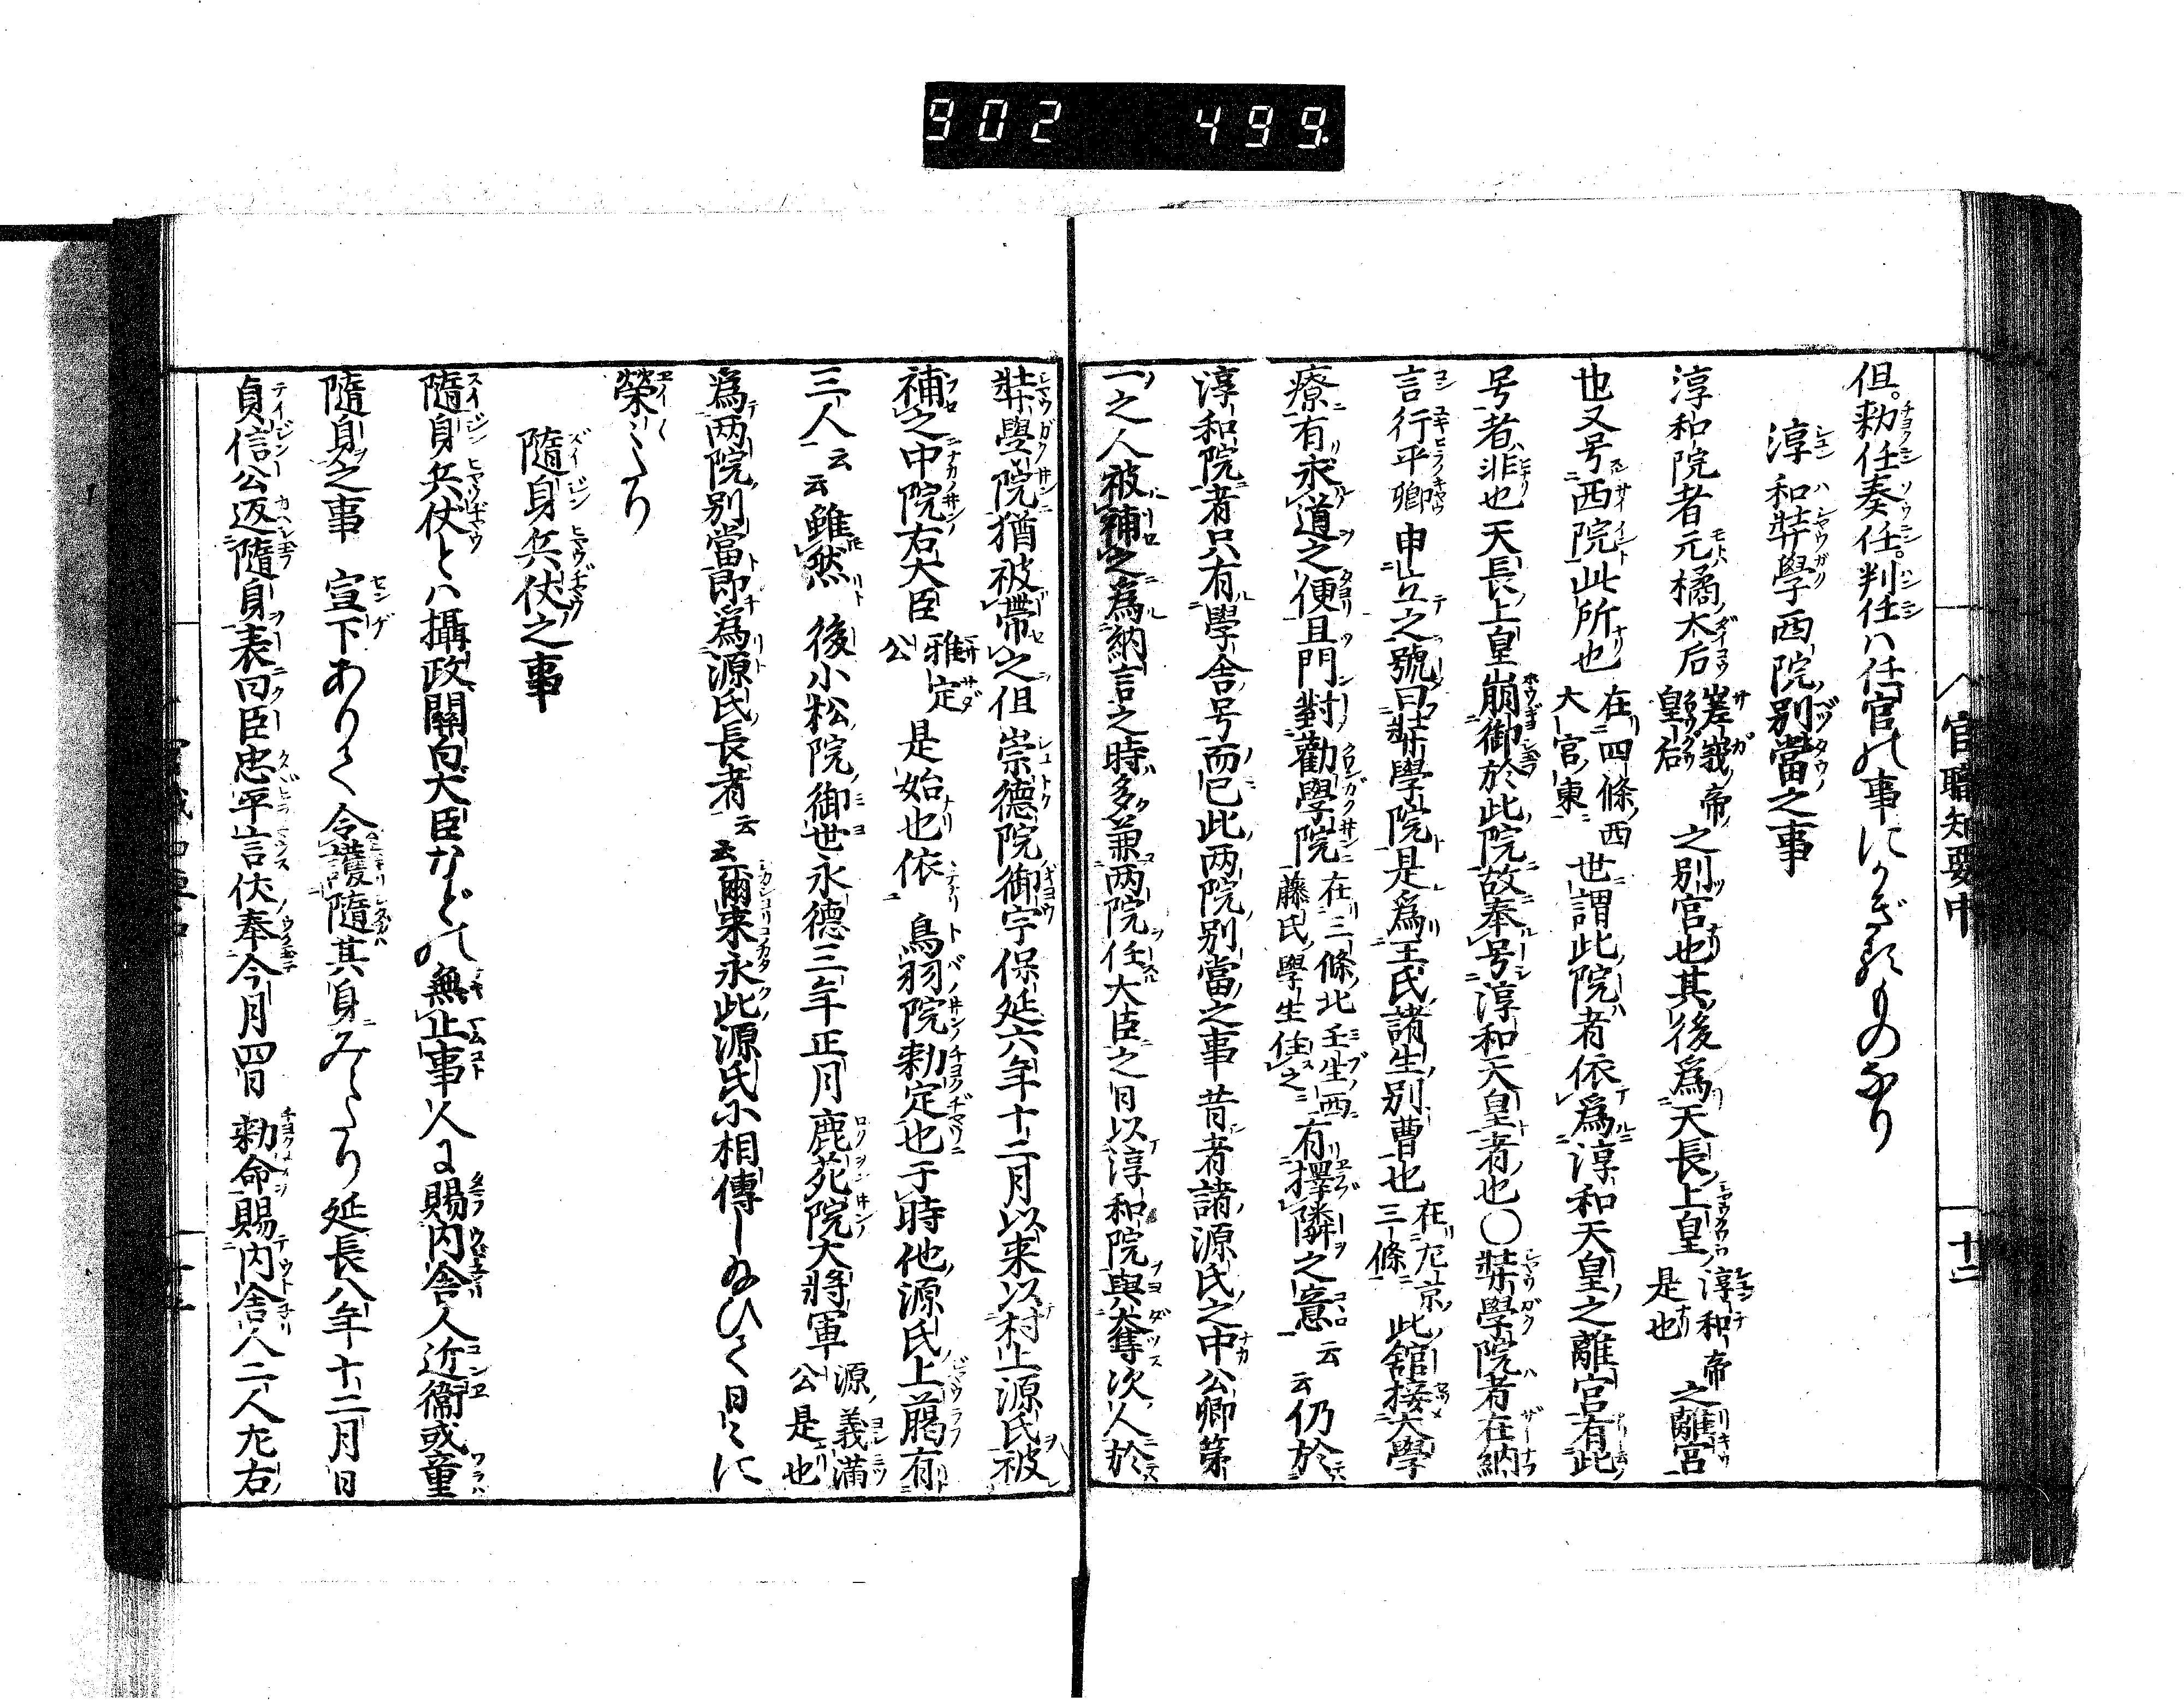 902 499
官職知要中
十二
但。勅任奏任。判任ハ任官の事にかぎるものなり
淳和奨學両院別當之事
淳和院者元橘太后嵯峨帝皇后之別宮也其後爲天長上皇淳和帝是也之離宮
也又号西院此所也在四條西大宮東世謂此院者依爲淳和天皇之離宮有此
号者非也天長上皇崩御於此院故奉号淳和天皇者也〇奨學院者在納
言行平卿申立之號曰奨學院是爲王氏諸生別曹也在左京三條此舘接大學
寮有求道之便且門對勸學院在三條北壬生西藤氏學生住之有擇隣之意云云仍於
淳和院者只有學舎号而已此两院別當之事昔者諸源氏之中公卿第
一之人被補之爲納言之時多兼两院任大臣之日以淳和院與奪次人於
奨學院猶被帶之但崇德院御宇保延六年十二月以来以村上源氏被
補之中院右大臣雅定公是始也依鳥羽院勅定也于時他源氏上﨟有
三人云云雖然後小松院御世永德三年正月鹿苑院大將軍源義滿公是也
爲两院別當即爲源氏長者云云爾来永此源氏小相傳し給ひて日々に
榮へたり
隨身兵仗之事
隨身兵仗とハ攝政關白大臣などの無止事人に賜内舎人近衞或童
隨身之事宣下ありて令護隨其身みたり延長八年十二月日
貞信公返隨身表曰臣忠平言伏奉今月四日勅命賜内舎人二人左右